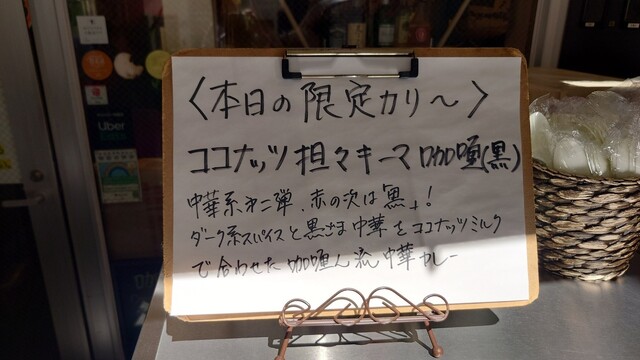 〈本日の限定カリ～〉
ココナッツ担々キーマ咖喱(黒)
中華系第二弾、赤の次は「黒」!
ダーク系スパイスと黒ごま中華をココナッツミルク
で合わせた咖喱ん流中華カレー
Uber